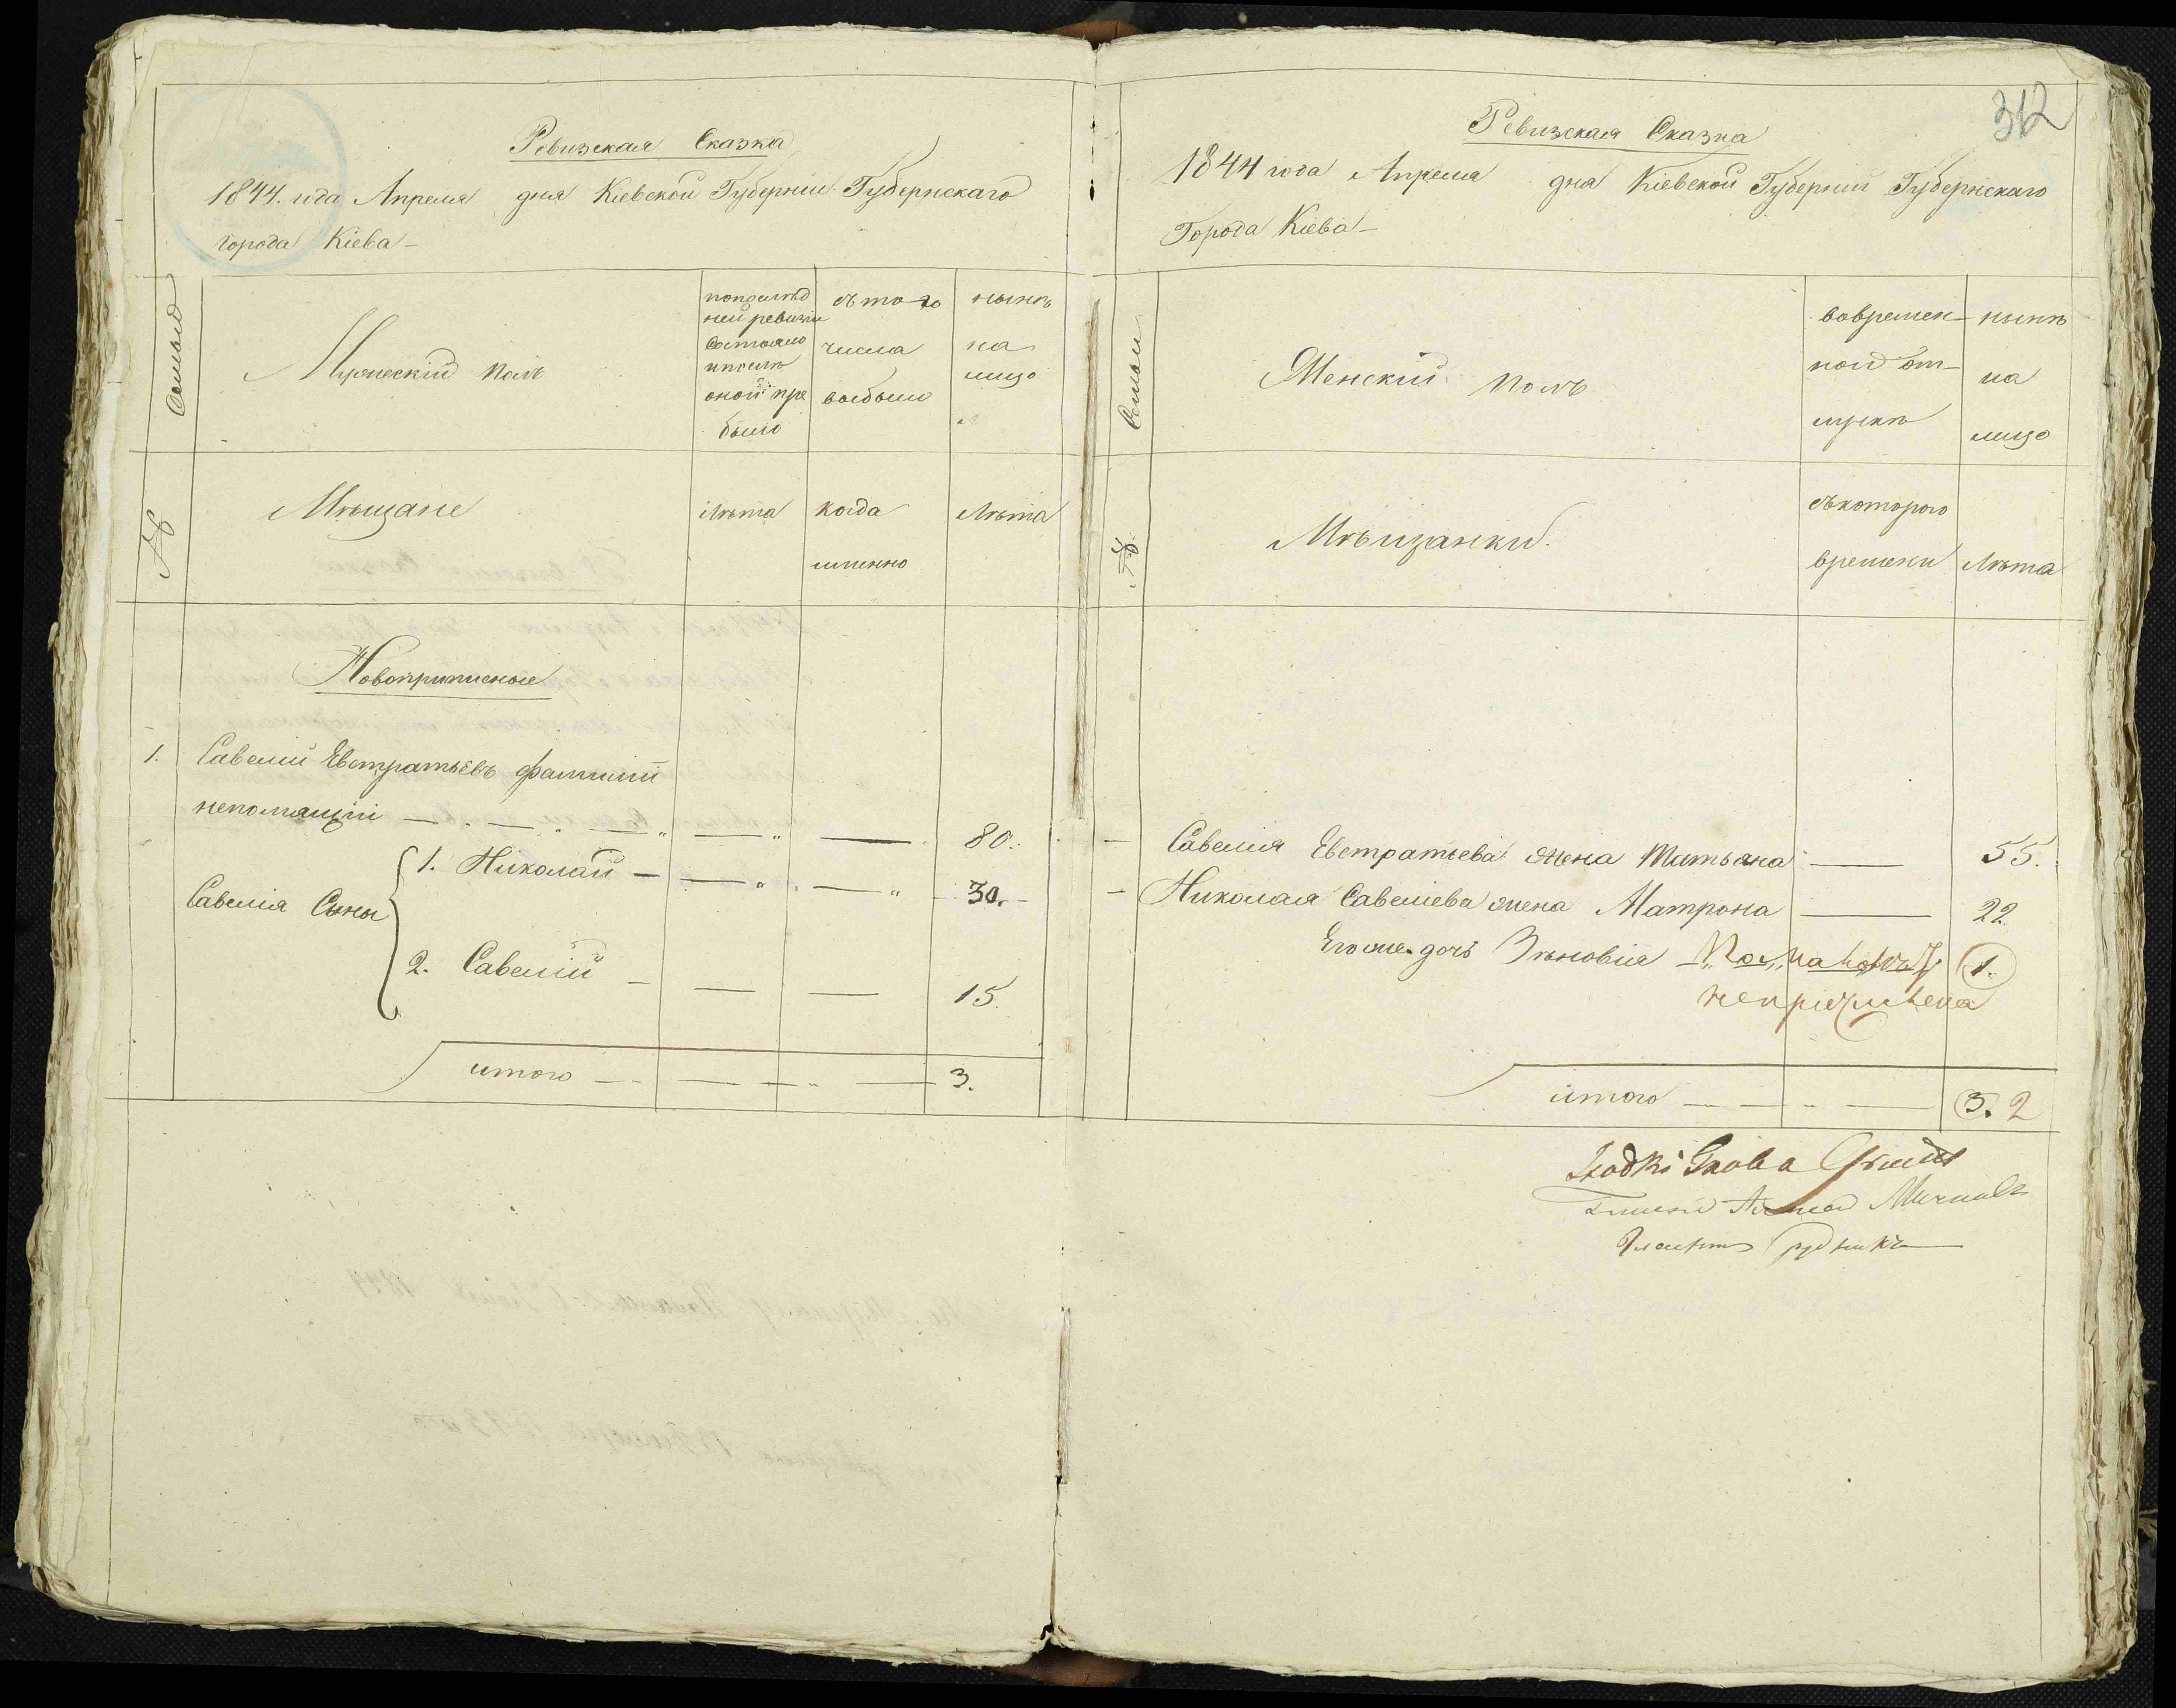 Ревизская Сказка
1844. года Апреля дня Кіевской Губерніи Губернскаго
города Кіева
Семьи
Мужескій полъ
попослѣд
ней ревизіи
состояло
ипослѣ
оной при
было
съ того
числа
выбыло
нынѣ
на
лицо
№
Мѣщане
лѣта
когда
именно
лѣта
Новоприписные
1. Савелій Евстратьевъ фамиліи
непомящій 80.
Савелія Сыны
1. Николай 30.
2. Савелій 15.
итого 3.
312
Ревизская Сказка
1844 года Апреля дня Кіевской Губерніи Губернскаго
Города Кіева
Семьи
Женскій полъ
вовремен
ной от
лучкѣ
нынѣ
на
лицо
№
Мѣщанки.
съкоторого
времени
лѣта
Савелія Евстратьева жена Татьяна 55.
Николая Савеліева жена Матрона 22.
Егоже дочь Зѣновія 1.
непричислена
итого 3. 2
Градскі Глова
Гласный